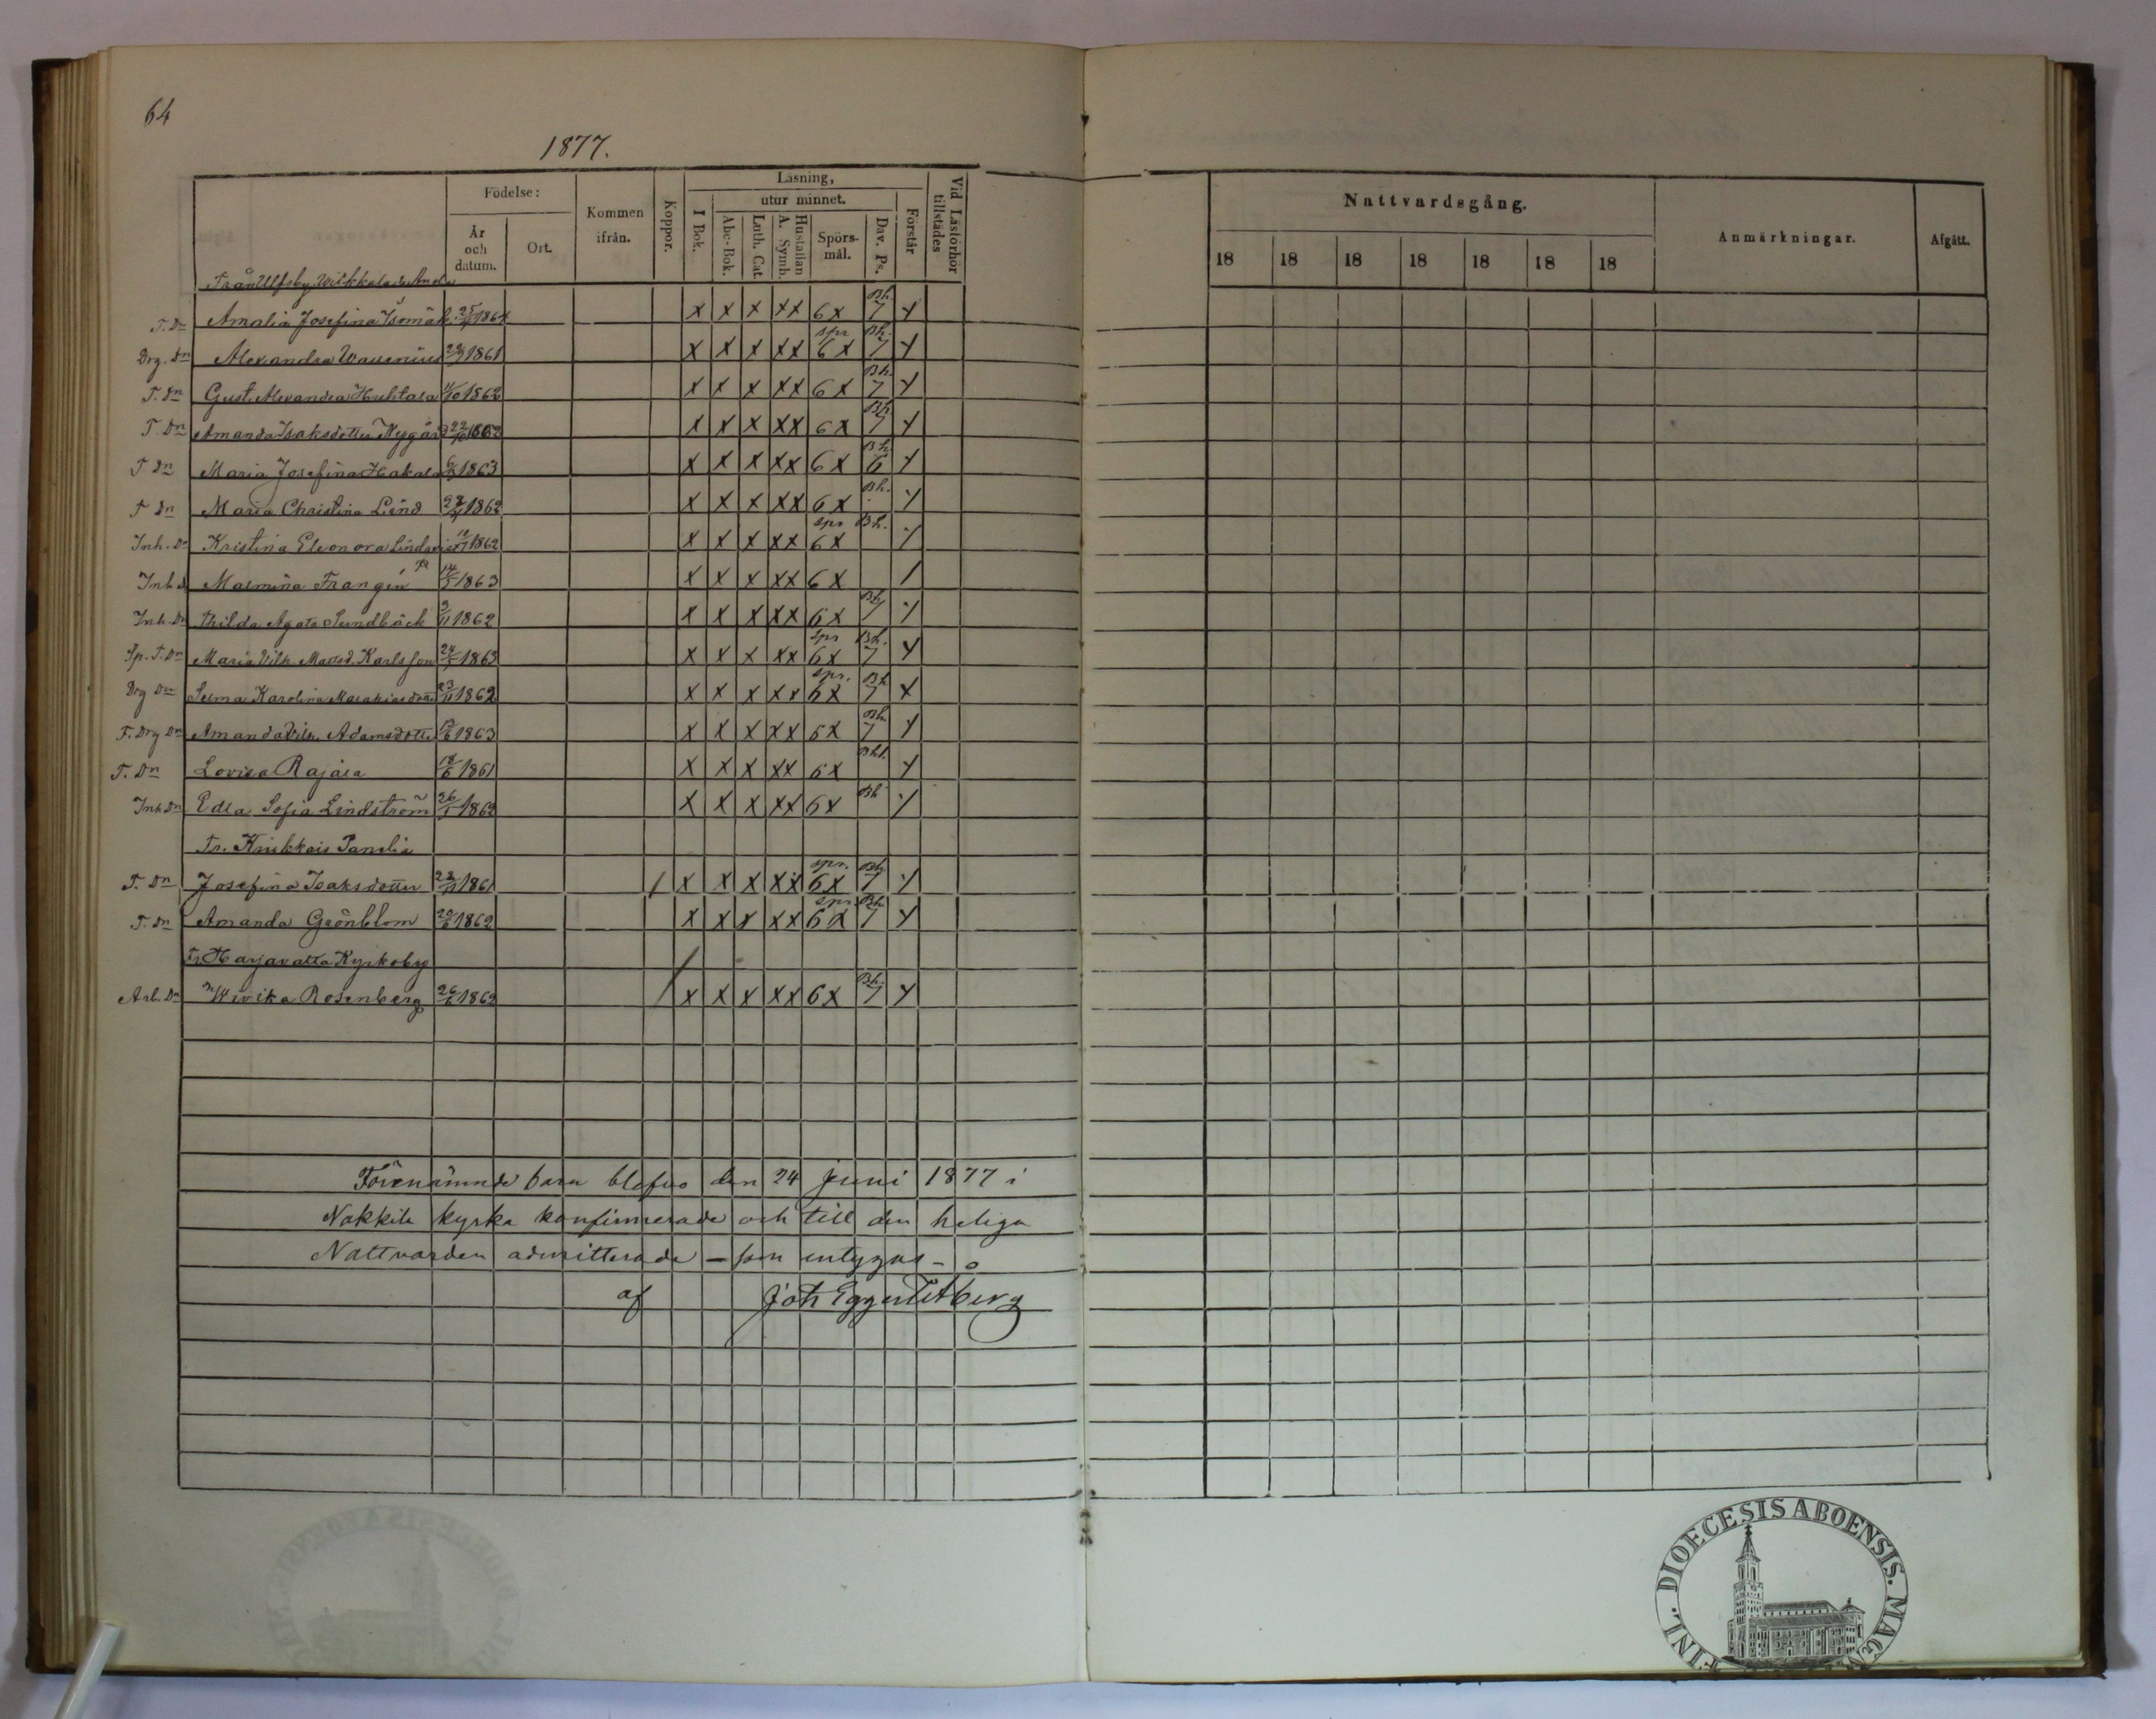 64
1877.
Födelse:
År och datum.
Ort.
Kommen ifrån.
Koppor.
Läsning,
I Bok.
utur minnet.
Abc-Bok.
Luth. Cat.
A. Symb. Hustaflan
Spörs-mål.
Dav. Ps.
Förstår
Vid Läsförhör tillstädes
Nattvardsgång.
18 18 18 18 18 18 18
Anmärkningar.
Afgått.
Från Ulfsby
T. Dn Amalia Josefina 1864 x x x xx 6x Bh. 7
Drg. Dn Alexandra Wauenius 1861 x x x xx spr 6x Bh. 7
T. Dn Gust. Alexandra Huhtala 11/10 1862 x x x xx 6x Bh. 7
T. Dn Amanda Isaksdotter Nygård 1862 x x x xx 6x Bh 7
T Dn Maria Josefina Hakala 1863 x x x xx 6x Bh. 6
T Dn Maria Christina Lind 1862 x x x xx 6x Bh.
Inh. Dn Kristina Eleonora 1862 x x x xx spr 6x Bh.
Inh. Malmina Frangén 1863 x x x xx 6x
Inh. Dn Thilda Agata Sundbäck 3/11 1862 x x x xx 6x Bh. 7
Sp. T. Dn Maria Vilh. Mattsd. Karlsson 1863 x x x xx spr 6x Bh. 7
Drg Dn Selma Karolina 23/11 1862 x x x xx spr. 6x Bh 7 x
T. Drg Dn Amanda Vilh. Adamsdotter 1863 x x x xx 6x Bh. 7
T. Dn Lovisa Rajala 1861 x x x xx 6x
Inh Dn Edla Sofia Lindström 1862 x x x xx 6x Bh
Fr. Panelia
T. Dn Josefina Isaksdotter 1861 x x x xx spr. 6x Bh 7
T. Dn Amanda Grönblom 1862 x x x xx spr. 6x Bh 7
Fr. Harjavalta Kyrkoby
Arb. Dn Wivika Rosenberg 1862 x x x xx 6x Bh. 7
Förenämnde barn blefvo den 24 Juni 1877 i
Nakkila kyrka konfirmerade och till den heliga
Nattvarden admitterade – som intygas –
af Joh Eggert
DIOECESIS ABOENSIS. MAGN
FINL.